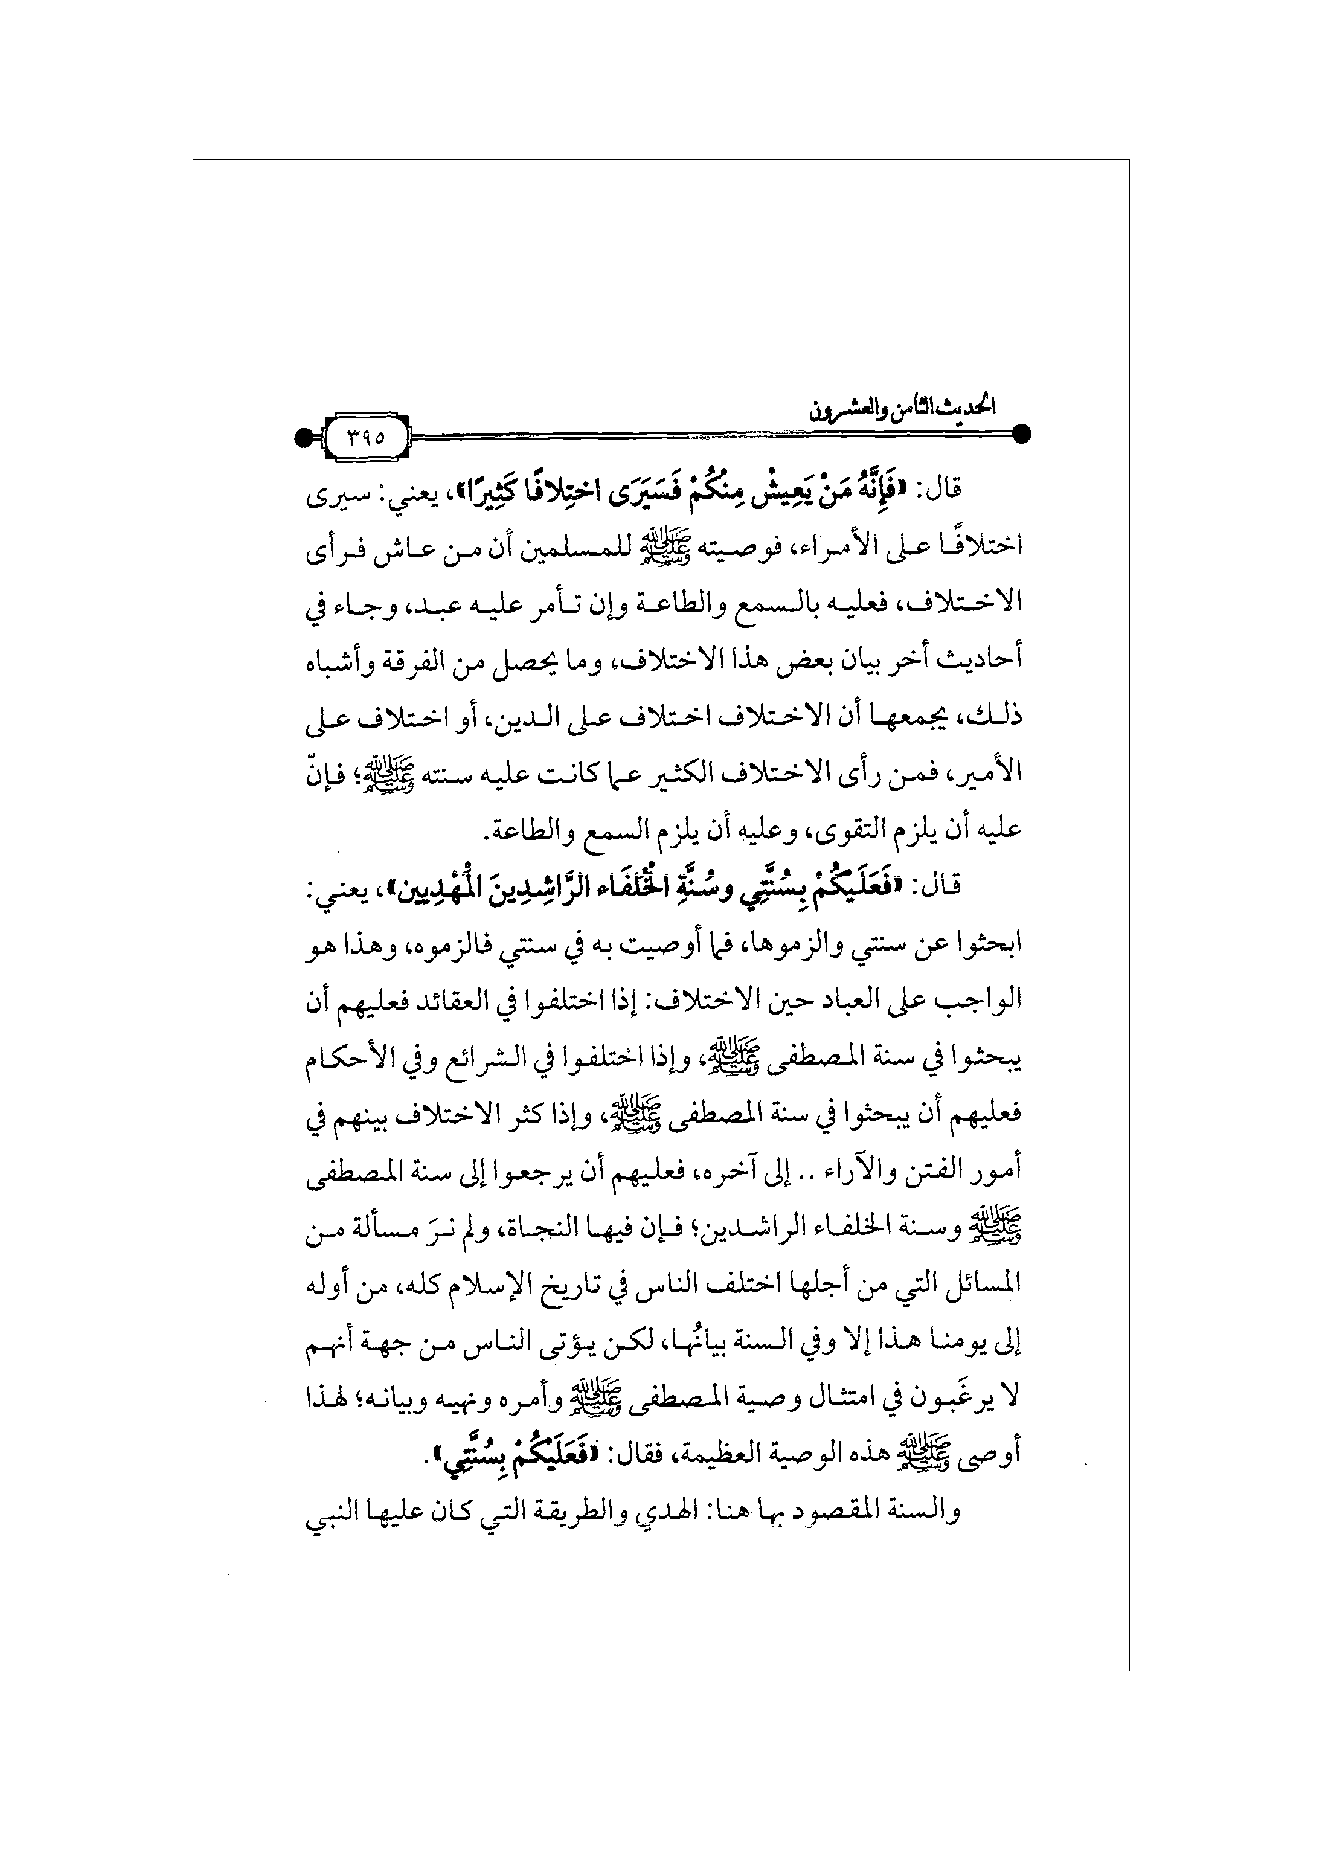 الحديث الثامن والعشرون
٣٩٥
قال: «فَإِنَّهُ مَنْ يَعِيشْ مِنْكُمْ فَسَيَرَى اختِلافًا كَثِيرًا»، يعني: سيرى
اختلافًا على الأمراء، فوصيته ﷺ للمسلمين أن من عاش فرأى
الاختلاف، فعليه بالسمع والطاعة وإن تأمر عليه عبد، وجاء في
أحاديث أخر بيان بعض هذا الاختلاف، وما يحصل من الفرقة وأشباه
ذلك، يجمعها أن الاختلاف اختلاف على الدين، أو اختلاف على
الأمير، فمن رأى الاختلاف الكثير عما كانت عليه سنته ﷺ؛ فإنّ
عليه أن يلزم التقوى، وعليه أن يلزم السمع والطاعة.
قال: «فَعَلَيكُمْ بِسُنَّتِي وسُنَّةِ الخُلَفَاء الرَّاشِدِينَ المُهْدِيين»، يعني:
ابحثوا عن سنتي والزموها، فما أوصيت به في سنتي فالزموه، وهذا هو
الواجب على العباد حين الاختلاف: إذا اختلفوا في العقائد فعليهم أن
يبحثوا في سنة المصطفى ﷺ، وإذا اختلفوا في الشرائع وفي الأحكام
فعليهم أن يبحثوا في سنة المصطفى ﷺ، وإذا كثر الاختلاف بينهم في
أمور الفتن والآراء .. إلى آخره، فعليهم أن يرجعوا إلى سنة المصطفى
ﷺ وسنة الخلفاء الراشدين؛ فإن فيها النجاة، ولم نرَ مسألة من
المسائل التي من أجلها اختلف الناس في تاريخ الإسلام كله، من أوله
إلى يومنا هذا إلا وفي السنة بيانُها، لكن يؤتى الناس من جهة أنهم
لا يرغَبون في امتثال وصية المصطفى ﷺ وأمره ونهيه وبيانه؛ لهذا
أوصى ﷺ هذه الوصية العظيمة، فقال: «فَعَلَيكُمْ بِسُنَّتِي».
والسنة المقصود بها هنا: الهدي والطريقة التي كان عليها النبي